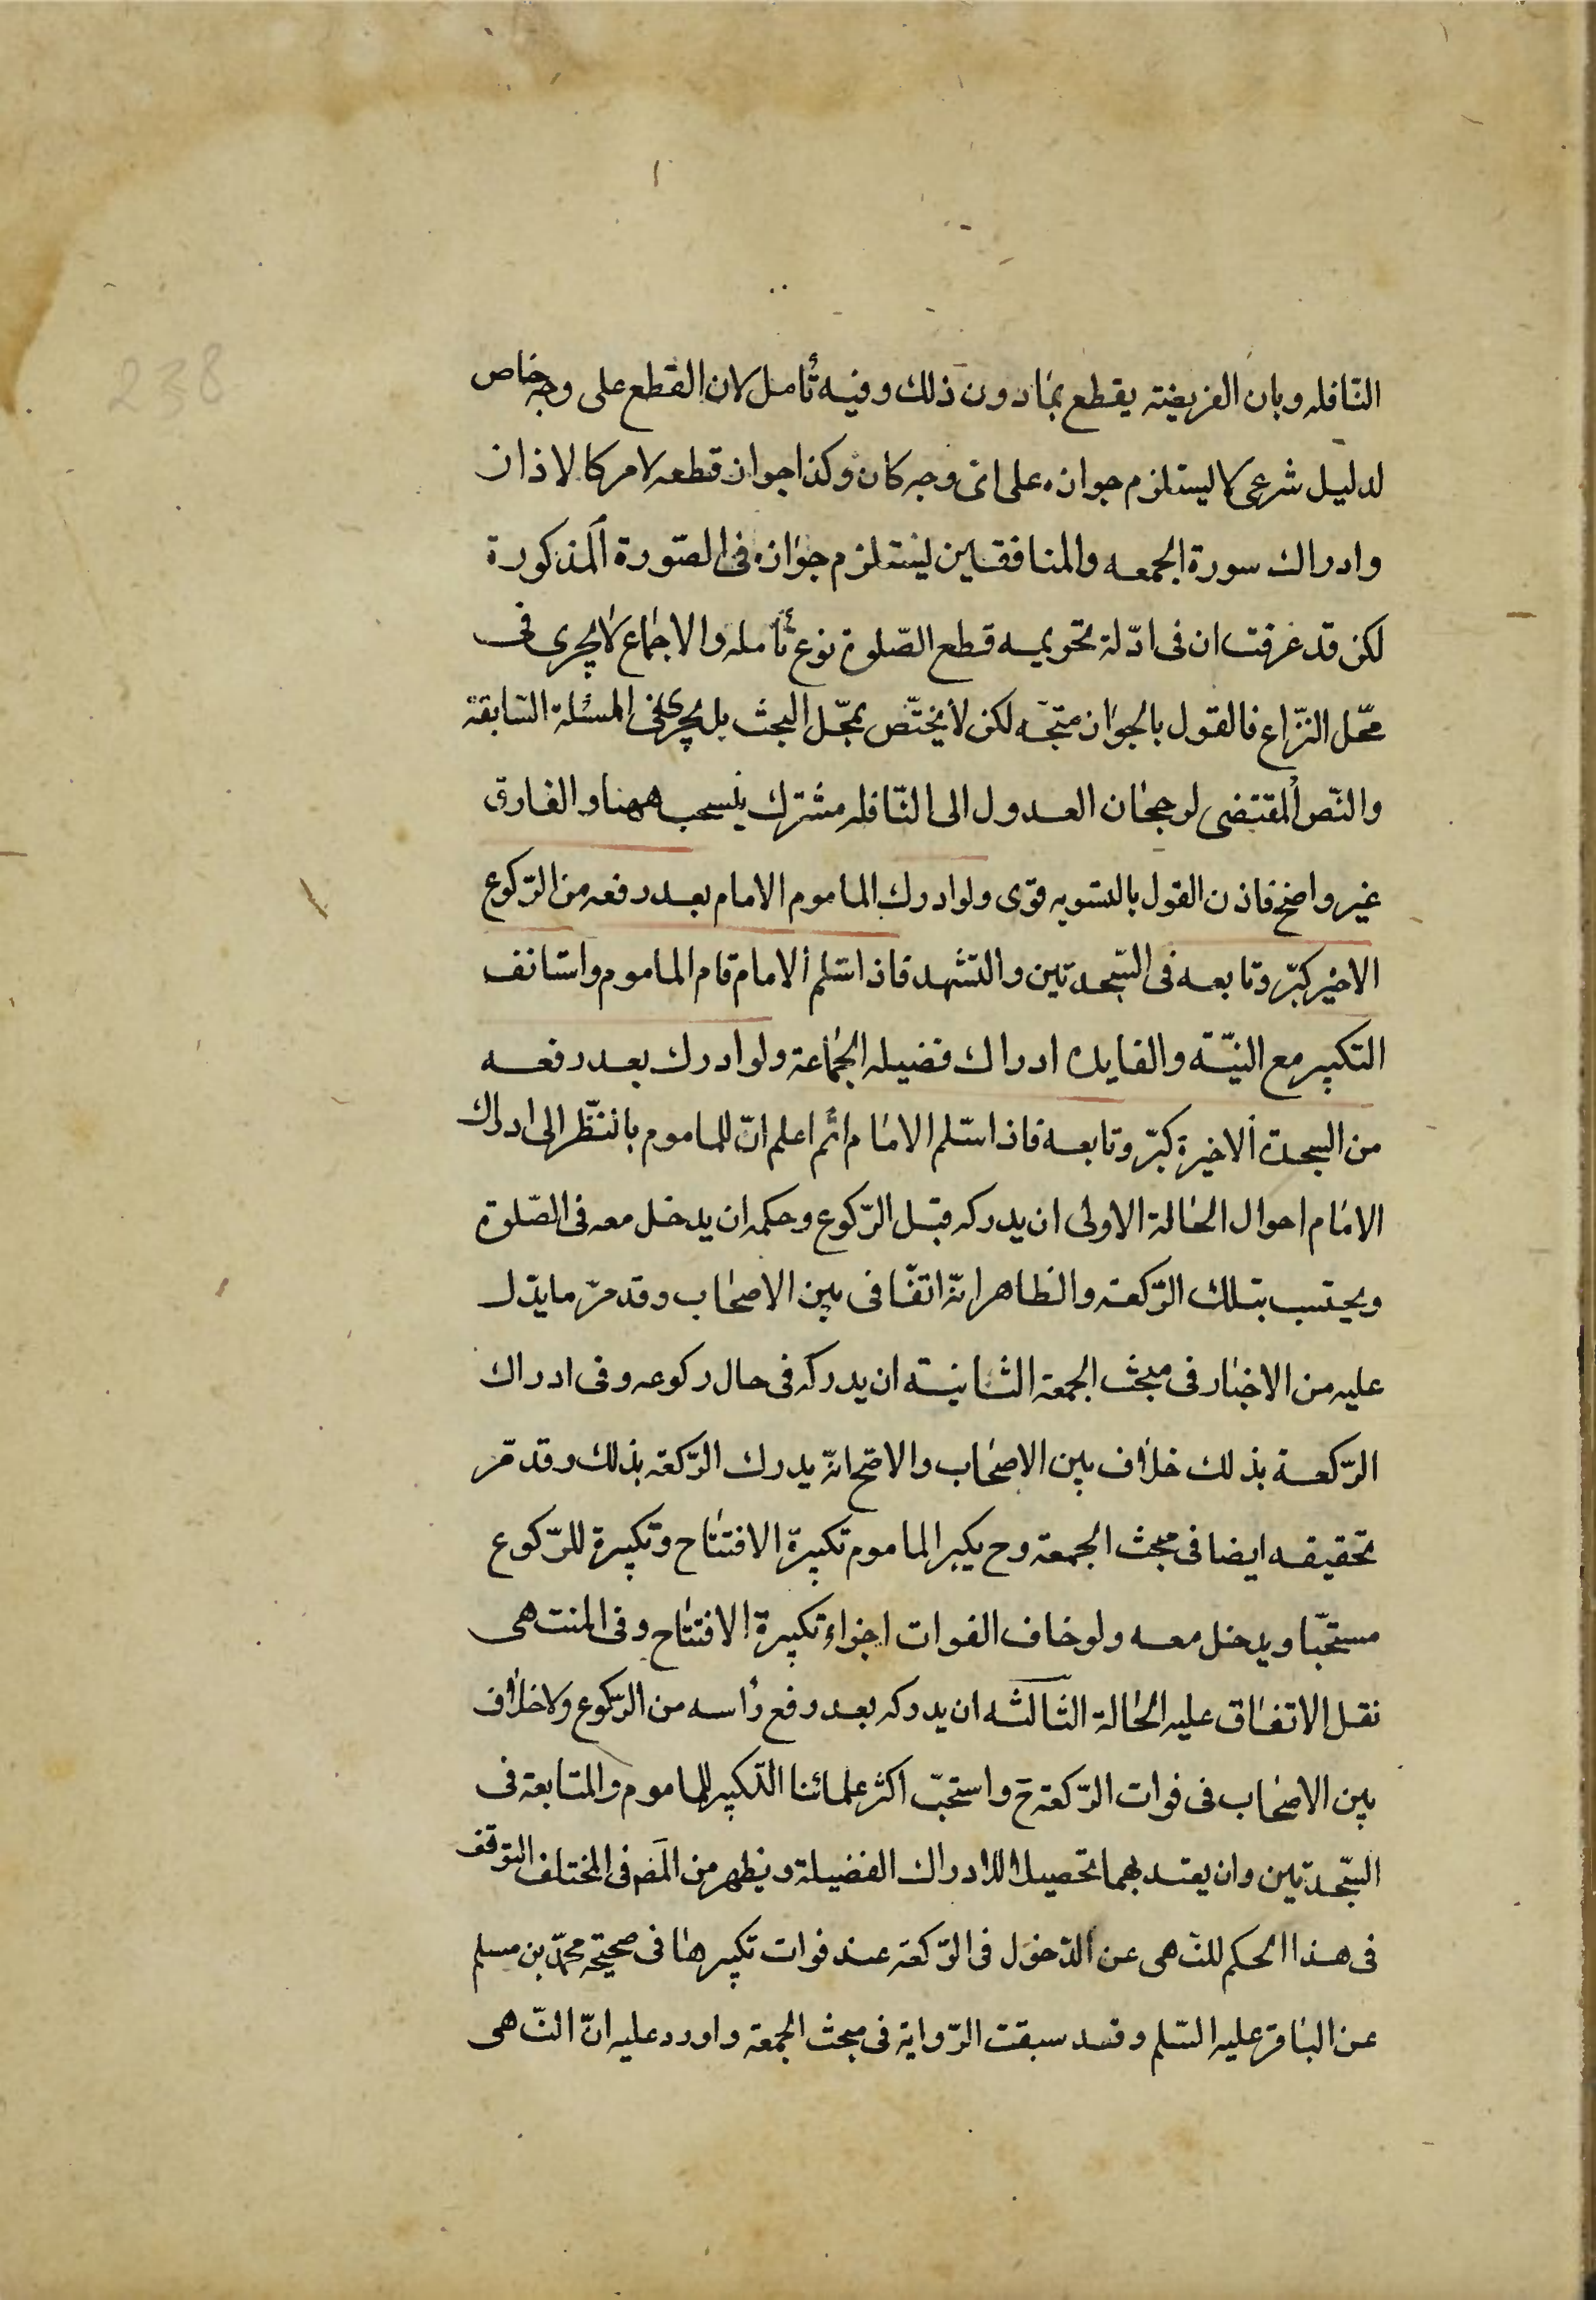 238
النّافله وبان الفريضة يقطع بما دون ذلك وفيه تأمل لان القطع على وجه خاص
لدليل شرعى لا ليستلزم جوازه على اى وجه كان وكذا جواز قطعه لامر كالاذان
وادراك سورة الجمعه والمنافقين ليستلزم جوازه فى الصّورة المذكورة
لكن قد عرفت ان فى ادّلة تحريمه قطع الصّلوة نوع تأمله والاجماع لا يجرى فى
محّل النزّاع فالقول بالجواز متجّه لكن لا يختّص بمحّل البحث بل يجرى فى المسئلة السّابقة
والنّص المقتضى لرجحان العدول الى النّافله مشترك ينسحب ههنا والفارق
غير واضح فاذن القول بالتسويه قوّى ولو ادرك الماموم الامام بعد رفعه من الرّكوع
الاخير كبّر وتابعه فى السّجدتين والتشهد فاذا سّلم الامام قام الماموم واستانف
التكبير مع النيّة والفايده ادراك فضيله الجماعة ولو ادرك بعد رفعه
من السجدة الاخيرة كبّر وتابعه فاذا سّلم الامام اتم اعلم انّ للماموم بالنّظر الى ادراك
الامام احوال الحالة الاولى ان يدركه قبل الرّكوع وحكمه ان يدخل معه فى الصّلوة
ويحتسب بتلك الرّكعة والظاهر انّه اتفّاقى بين الاصحاب وقد مرّ ما يدّل
عليه من الاخبار فى مبحث الجمعة الثانية ان يدركه فى حال ركوعه وفى ادراك
الرّكعة بذلك خلاف بين الاصحاب والاصّح انّه يدرك الرّكعة بذلك وقد مّر
تحقيقه ايضا فى مبحث الجمعة وح يكبر الماموم تكبيرة الافتتاح وتكبيرة للرّكوع
مستحبّا ويدخل معه ولو خاف الفوات اجزاءه تكبيرة الافتتاح وفى المنتهى
نقل الاتفاق عليه الحالة الثالثه ان يدركه بعد رفع رأسه من الرّكوع ولا خلاف
بين الاصحاب فى فوات الرّكعة ح واستحبّ اكثر علمائنا التكبير للماموم والمتابعة فى
السّجدتين وان يعتد بهما تحصيلا لادراك الفضيلة ويظهر من المص فى المختلف التوقف
فى هذا الحكم للنّهى عن الدّخول فى الرّكعة عند فوات تكبيرها فى صحيحة محمّد بن مسلم
عن الباقر عليه السّلم وقد سبقت الرّواية فى مبحث الجمعة واورد عليه انّ النّهى